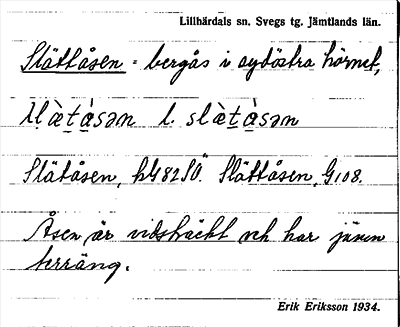 Lillhärdals sn. Svegs tg. jämtlands län.
Slättåsen = bergås i sydöstra hörnet,
l. slàtåsən
Slätåsen, Slättåsen, G108.
Åsen är vidsträckt och har jämn
terräng.
Erik Eriksson 1934.